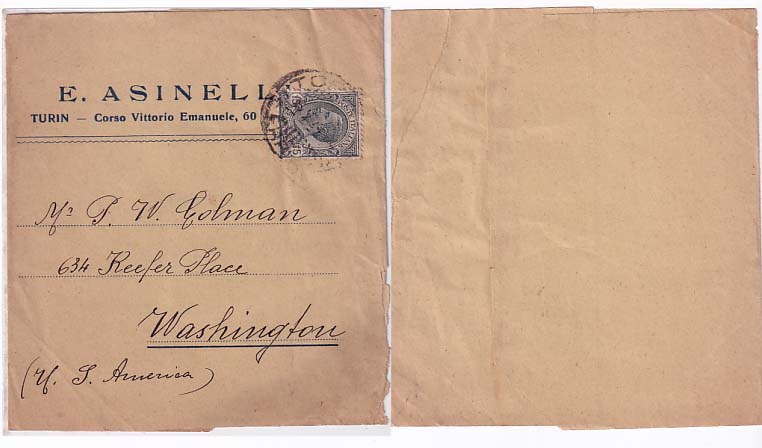 E. ASINELLI
TURIN — Corso Vittorio Emanuele, 60
Mr. P. W. Colman
634 Keefer Place
Washington
(U. S. America)